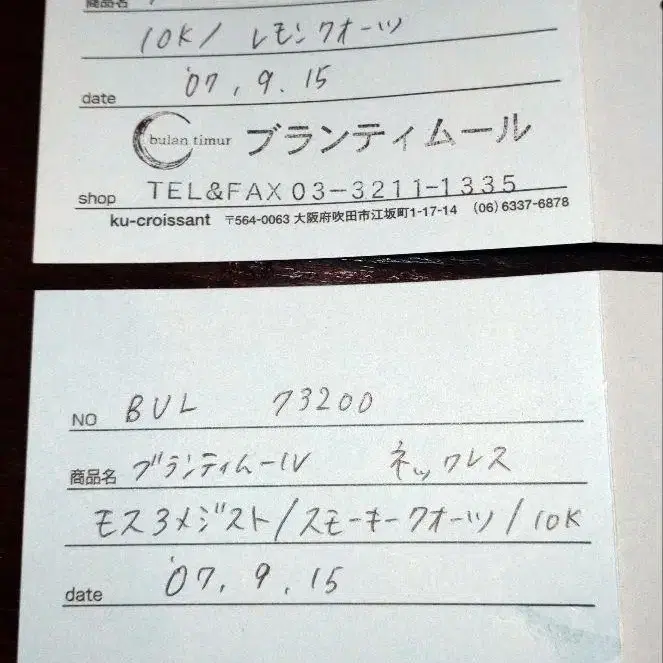 商品名
10K/ レモンクオーツ
date '07, 9. 15
bulan timur ブランティムール
shop TEL&FAX 03-3211-1335
ku-croissant 〒564-0063 大阪府吹田市江坂町1-17-14 (06) 6337-6878
NO BUL 73200
商品名 ブランティムール ネックレス
モス3メジスト/スモーキークオーツ/10K
date '07. 9. 15